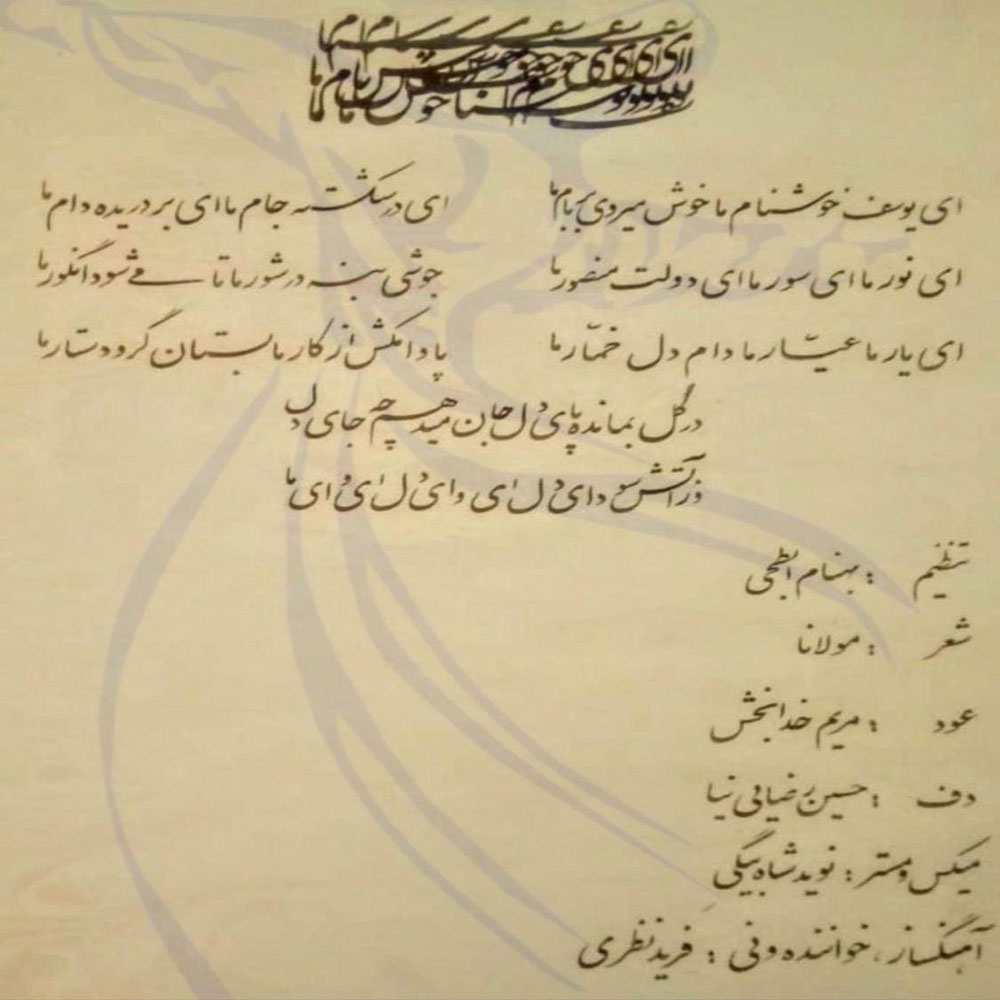 ای یوسف خوشنام ما خوش میروی بر بام ما ای درشکسته جام ما ای بر دریده دام ما
ای نور ما ای سور ما ای دولت منصور ما جوشی بنه در شور ما تا می شود انگور ما
ای یار ما عیّار ما دام دل خمّار ما پا وامکش از کار ما بستان گرو دستار ما
در گل بمانده پای دل جان میدهم چه جای دل
وز آتش سودای دل ای وای دل ای وای ما
تنظیم : بهنام ابطحی
شعر : مولانا
عود : مریم خدابخش
دف : حسین رضایی نیا
میکس و مستر : نوید شاه بیگی
آهنگساز، خواننده و نی : فرید نظری